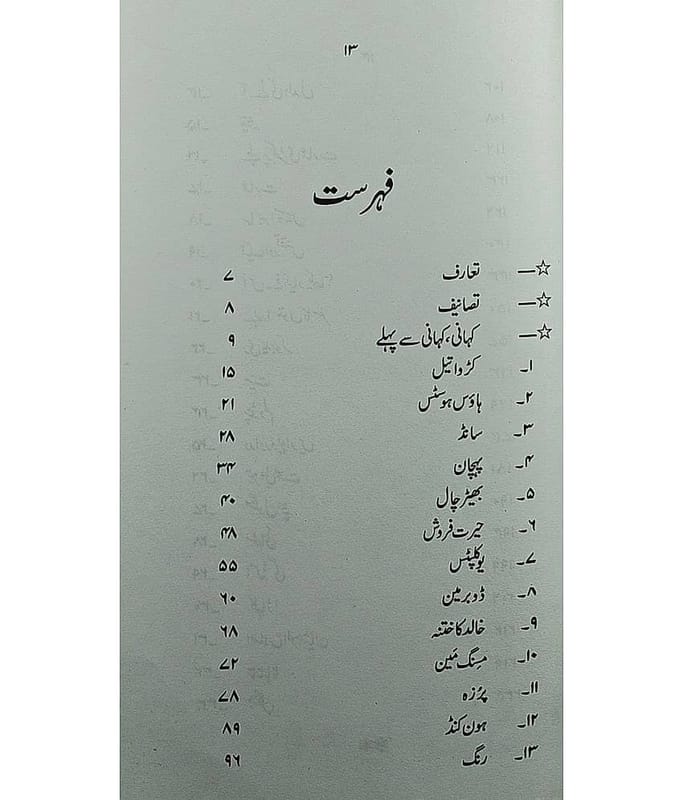 ۱۳
فہرست
☆— تعارف ۷
☆— تصانیف ۸
☆— کہانی، کہانی سے پہلے ۹
۱۔ کڑوا تیل ۱۵
۲۔ ہاؤس ہوسٹس ۲۱
۳۔ سانڈ ۲۸
۴۔ پہچان ۳۴
۵۔ بھیڑ چال ۴۰
۶۔ حیرت فروش ۴۸
۷۔ یوکلپٹس ۵۵
۸۔ ڈوبرمین ۶۰
۹۔ خالد کا ختنہ ۶۸
۱۰۔ مِسنگ مَین ۷۲
۱۱۔ پُرزہ ۷۸
۱۲۔ ہون کنڈ ۸۹
۱۳۔ رنگ ۹۶